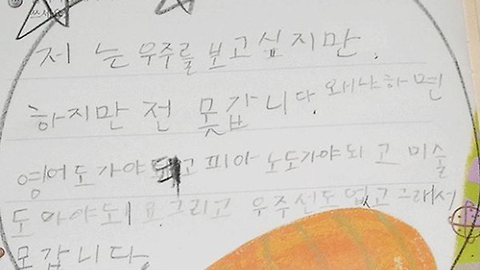 쓰세요
저는 우주를 보고 싶지만.
하지만 전 못갑니다. 왜냐하면
영어도가야 되고 피아노도가야되고 미술
도 아야되요 그리고 우주선도 업고 그래서
모갑니다.